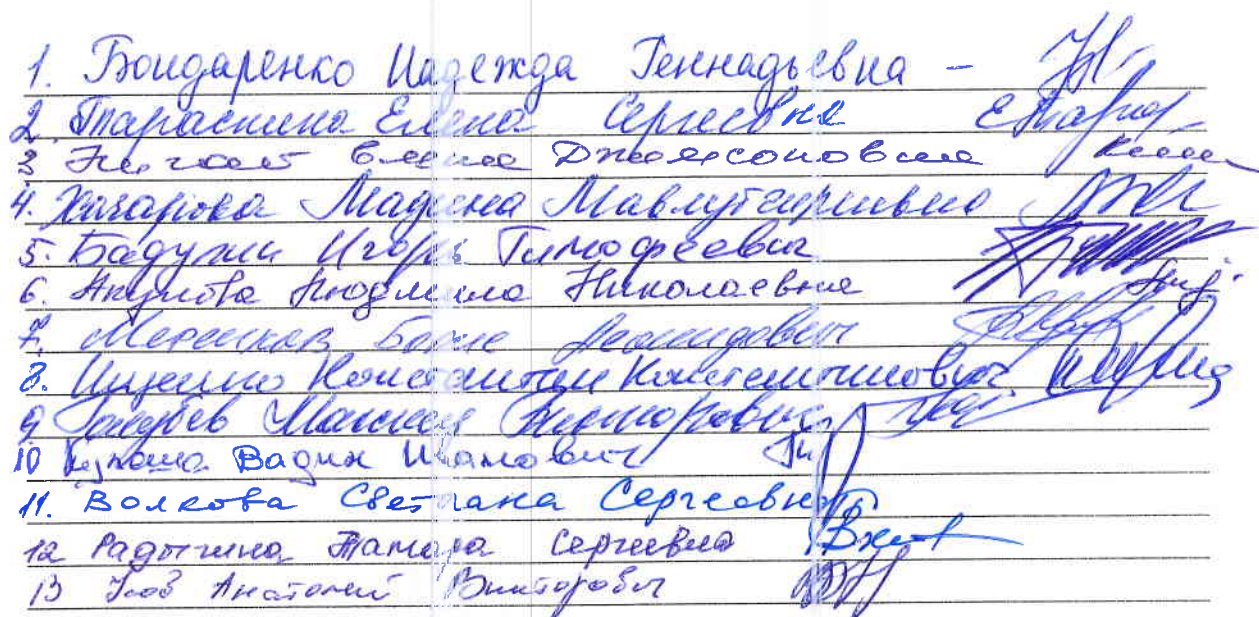 1. Бондаренко Надежда Геннадьевна -
2. Тараскина Елена Сергеевна
3 Елена Джемсоновна
4. Мадина Мавлутгириевна
5. Бадужи Игорь Тимофеевич
6. Акулова Людмила Николаевна
7. Леонидович
8. Ищенко Константин Константинович
9 Голубев Максим Викторович
10 Вадим Иванович
11. Волкова Светлана Сергеевна
12 Радыгина Тамара Сергеевна
13 Анатолий Викторович